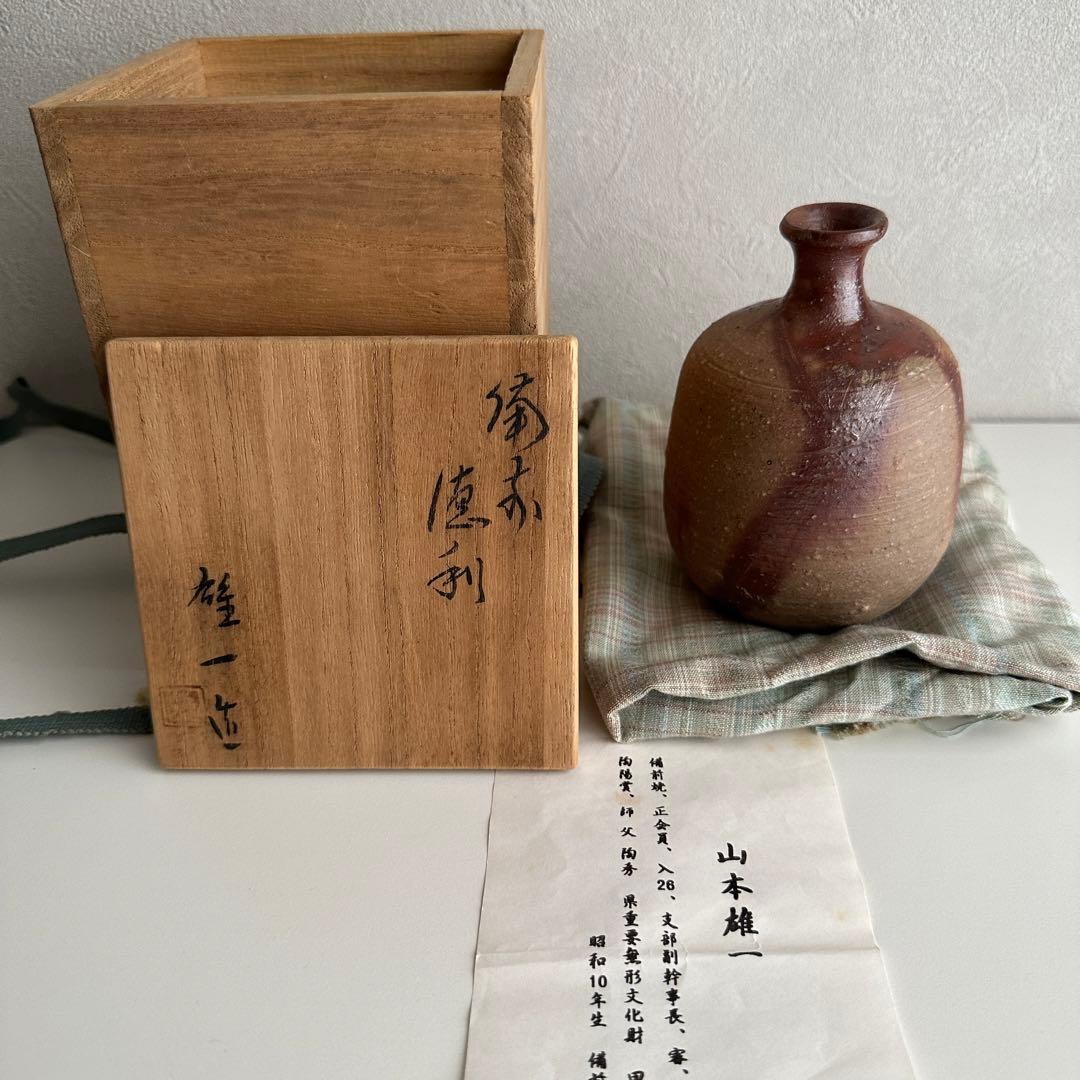 備前
徳利
雄一造
山本雄一
備前焼、正会員、入26、支部副幹事長、審、
陶陽賞、師 父 陶秀 県重要無形文化財
昭和10年生 備前